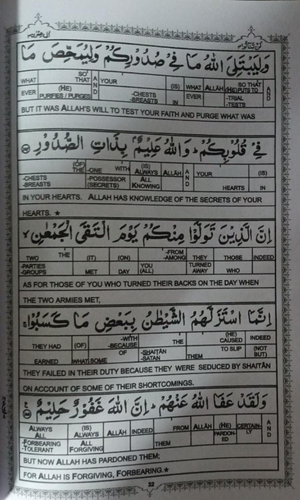 وَلِيَبْتَلِيَ اللّٰهُ مَا فِيْ صُدُوْرِكُمْ وَلِيُمَحِّصَ مَا
WHAT EVER SO THAT (HE) PURIFIES / PURGES AND YOUR -CHESTS -BREASTS IN (IS) WHAT EVER ALLAH (HE)PUTS TO -TRIAL -TESTS SO THAT AND
BUT IT WAS ALLAH'S WILL TO TEST YOUR FAITH AND PURGE WHAT WAS
فِيْ قُلُوْبِكُمْ ؕ وَاللّٰهُ عَلِيْمٌۢ بِذَاتِ الصُّدُوْرِ
-CHESTS -BREASTS THE (OF) -WITH -ONE -POSSESSOR (SECRETS) (IS) ALWAYS ALL KNOWING ALLAH AND YOUR HEARTS (IS) IN
IN YOUR HEARTS. ALLAH HAS KNOWLEDGE OF THE SECRETS OF YOUR
HEARTS. ★
اِنَّ الَّذِيْنَ تَوَلَّوْا مِنْكُمْ يَوْمَ الْتَقَى الْجَمْعٰنِ ۙ
TWO -PARTIES -GROUPS THE (IT) MET (ON) DAY YOU (ALL) -FROM -AMONG THEY TURNED AWAY THOSE WHO INDEED
AS FOR THOSE OF YOU WHO TURNED THEIR BACKS ON THE DAY WHEN
THE TWO ARMIES MET,
اِنَّمَا اسْتَزَلَّهُمُ الشَّيْطٰنُ بِبَعْضِ مَا كَسَبُوْا ۚ
THEY HAD EARNED (OF) WHAT SOME -WITH -BECAUSE OF -SHAITĀN -SATAN THE THEM (HE) CAUSED TO SLIP INDEED (NOT BUT)
THEY FAILED IN THEIR DUTY BECAUSE THEY WERE SEDUCED BY SHAITĀN
ON ACCOUNT OF SOME OF THEIR SHORTCOMINGS.
وَلَقَدْ عَفَا اللّٰهُ عَنْهُمْ ؕ اِنَّ اللّٰهَ غَفُوْرٌ حَلِيْمٌ
ALWAYS ALL -FORBEARING -TOLERANT (IS) ALWAYS ALL FORGIVING ALLAH INDEED FROM THEM ALLAH (HE) PARDONED CERTAINLY AND
BUT NOW ALLAH HAS PARDONED THEM;
FOR ALLAH IS FORGIVING, FORBEARING. ★